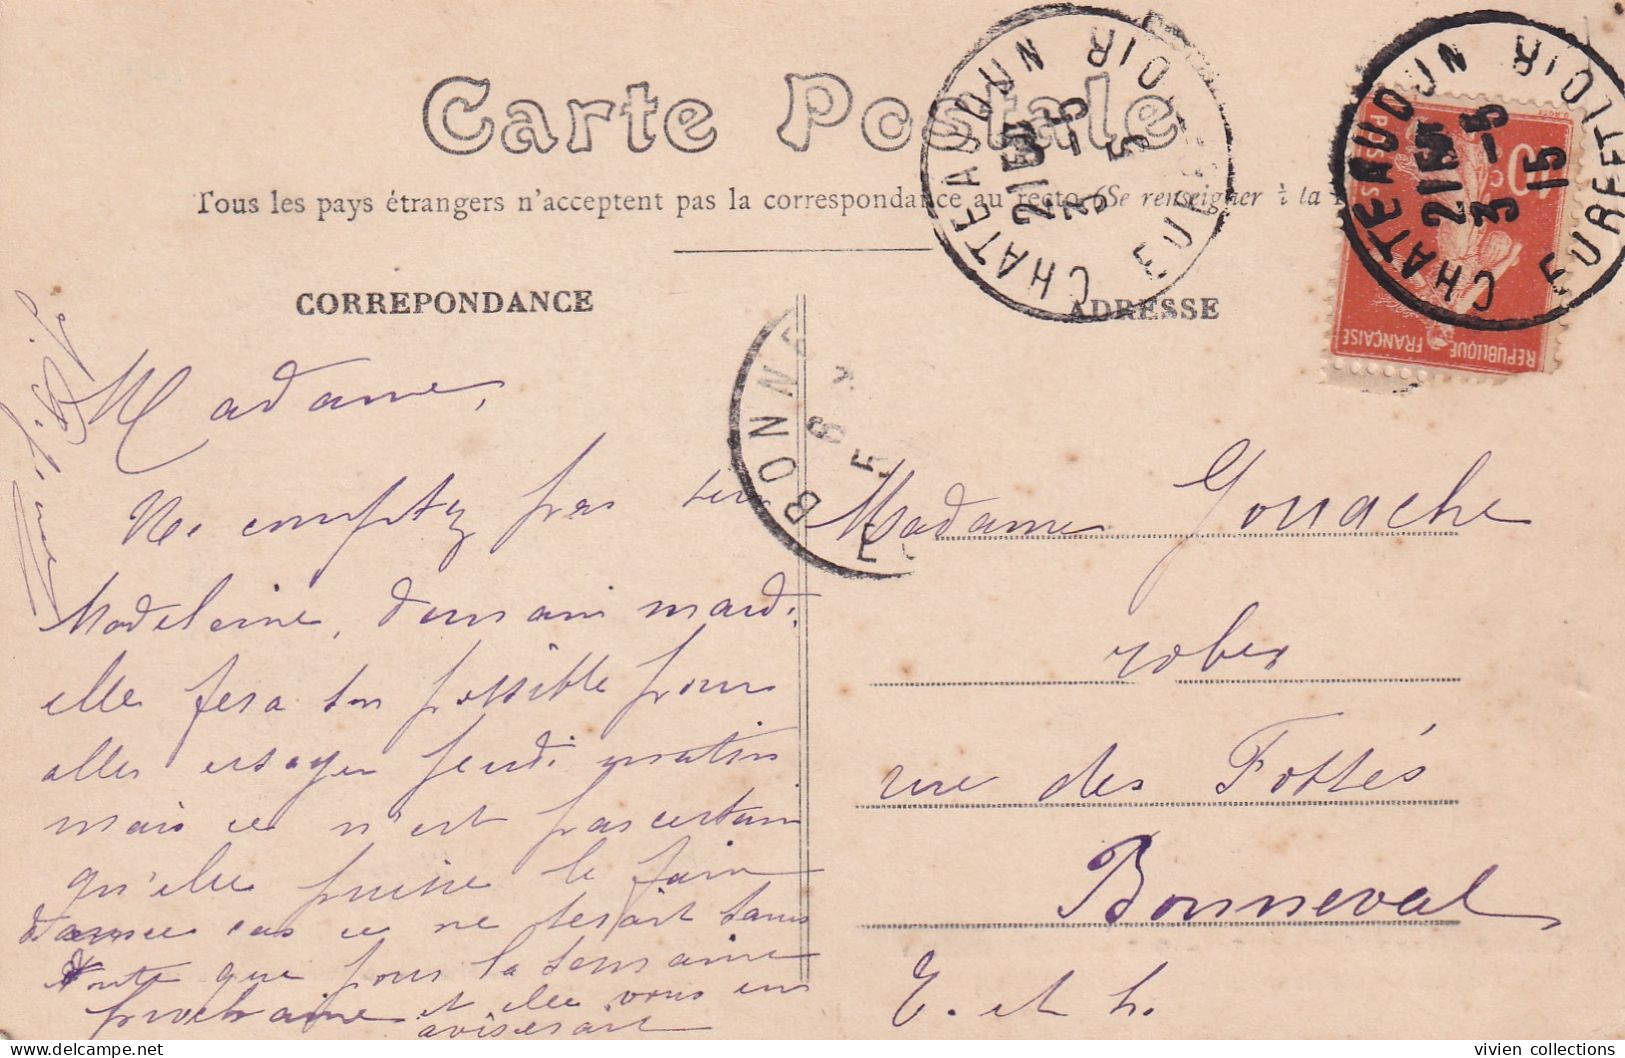 Carte Postale
Tous les pays étrangers n'acceptent pas la correspondance au recto (Se renseigner à la
CHATEAUDUN EURE ET LOIR
21
3 -5
15
CHATEAUDUN EURE ET LOIR
21
3 -5
15
10c
POSTES
REPUBLIQUE FRANÇAISE
CORREPONDANCE
ADRESSE
BONNE
6
5
E
Madame,
Ne comptez pas sur
Madeleine, demain mardi
elle fera son possible pour
aller essayer jeudi matin
mais ce n'est pas certain
qu'elle puisse le faire
dans ce cas ce ne serait sans
doute que pour la semaine
prochaine et elle vous en
aviserait
Madame Gouache
robes
rue des Fossés
Bonneval
E. et L.
vivien collections